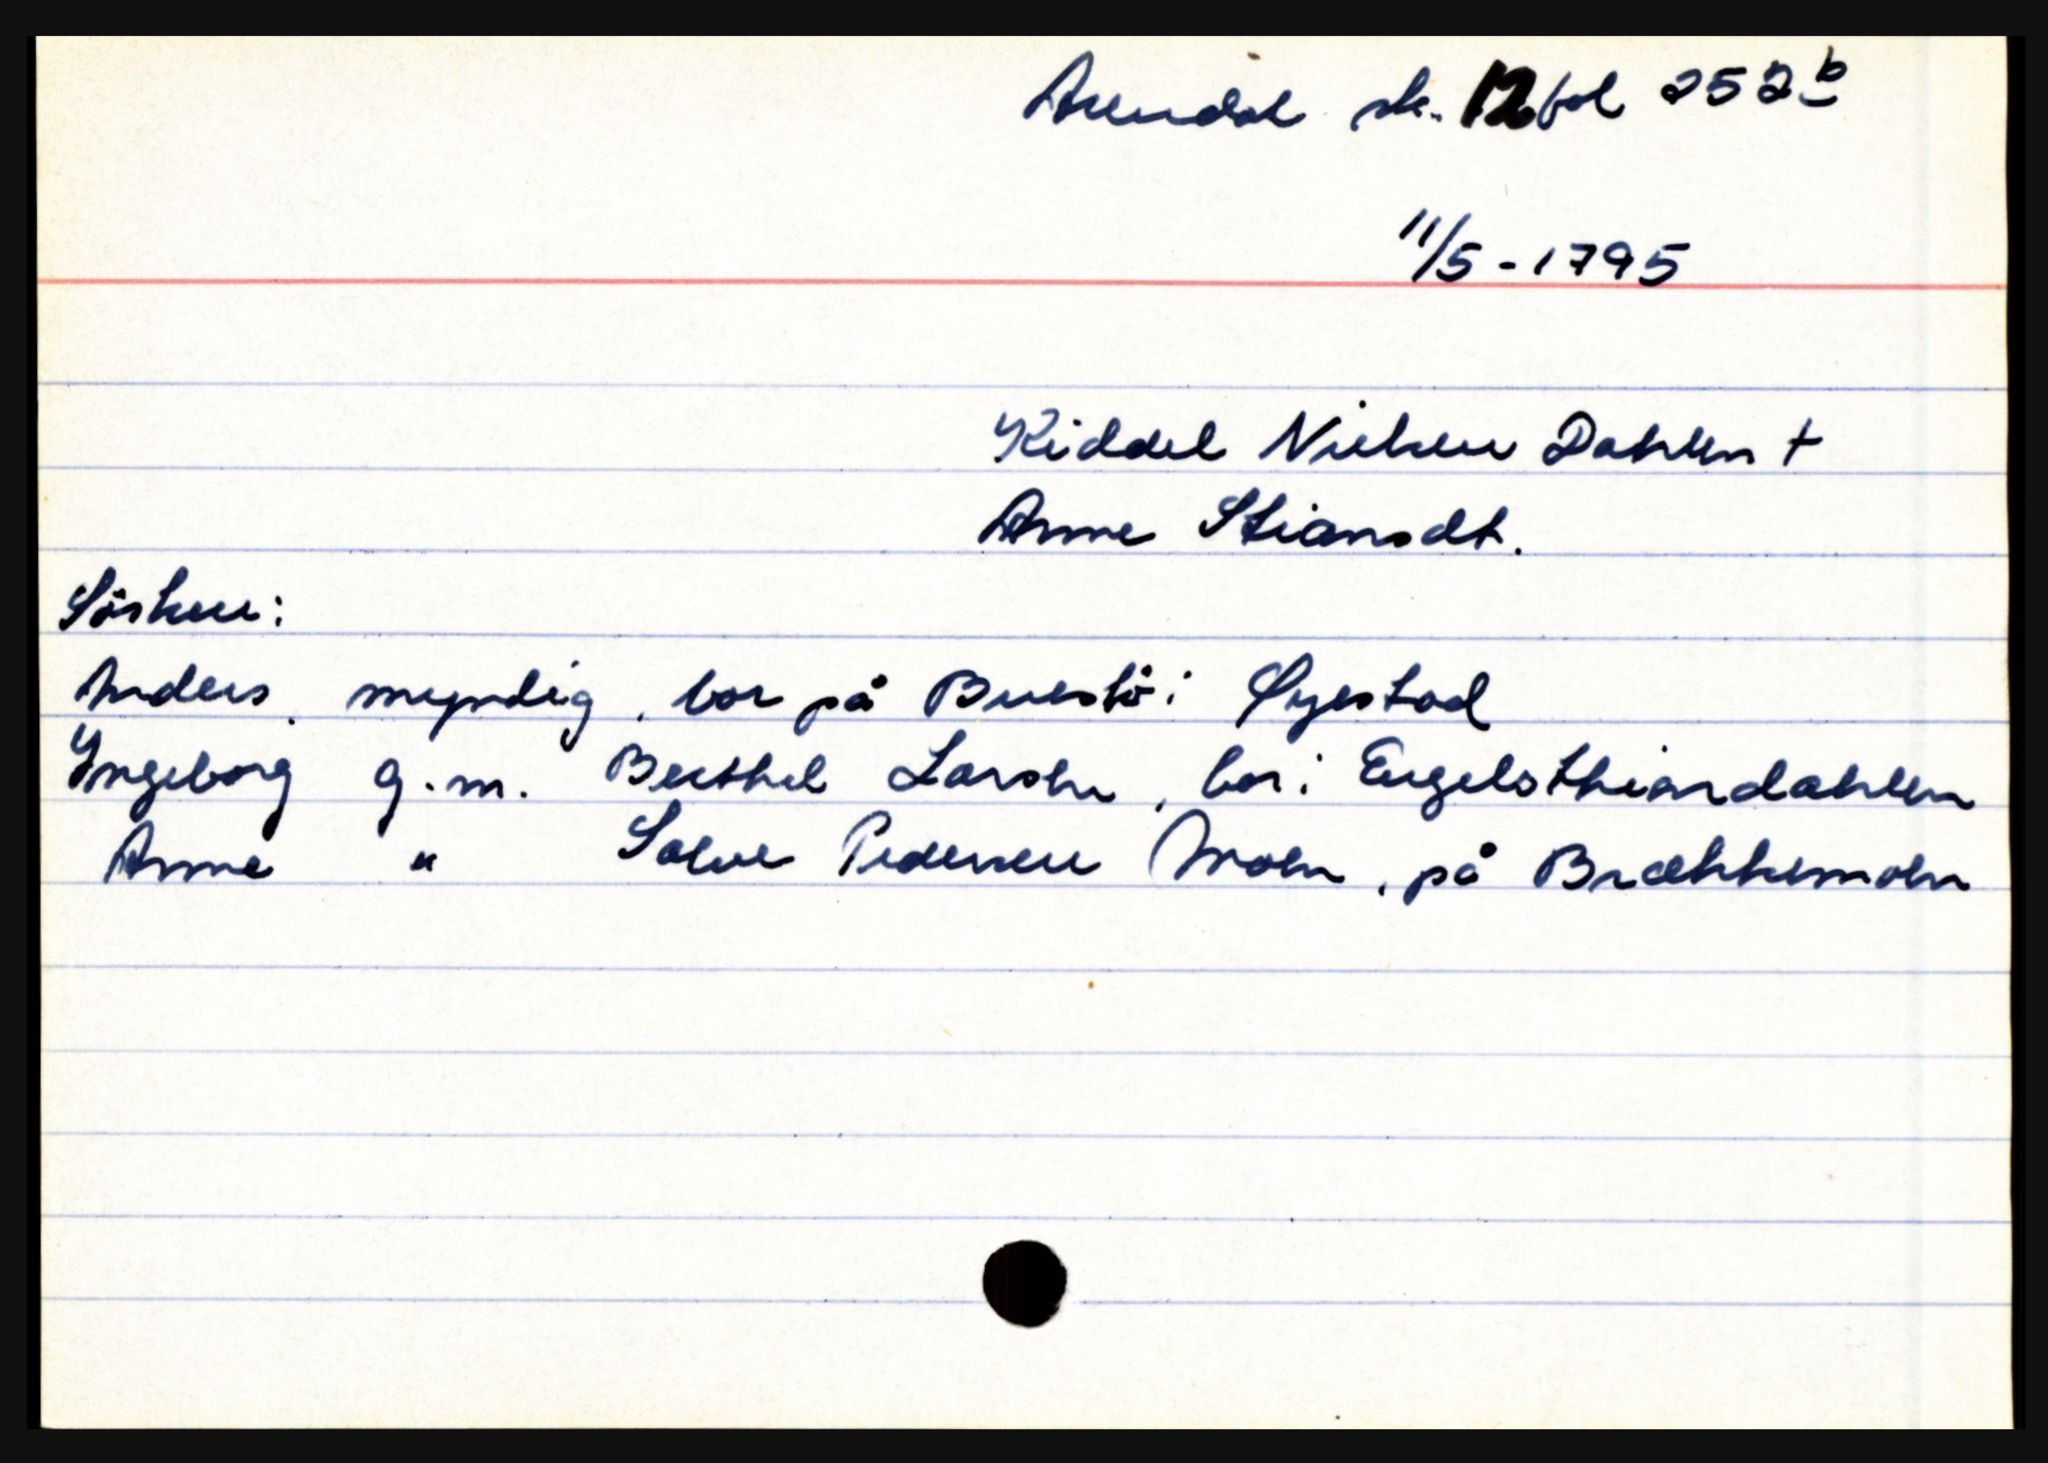 Arendal sk. 12 fol 252 b
11/5 - 1795
Kiddel Nielsen Dahlen +
Anne Stiansdt.
Søsken:
Anders, myndig, bor på Buestö i Øyestad
Yngeborg g.m. Berthel Larsen, bor i Engelsthiondahlen
Anne " Salve Pedersen Moen, på Brækkemoen